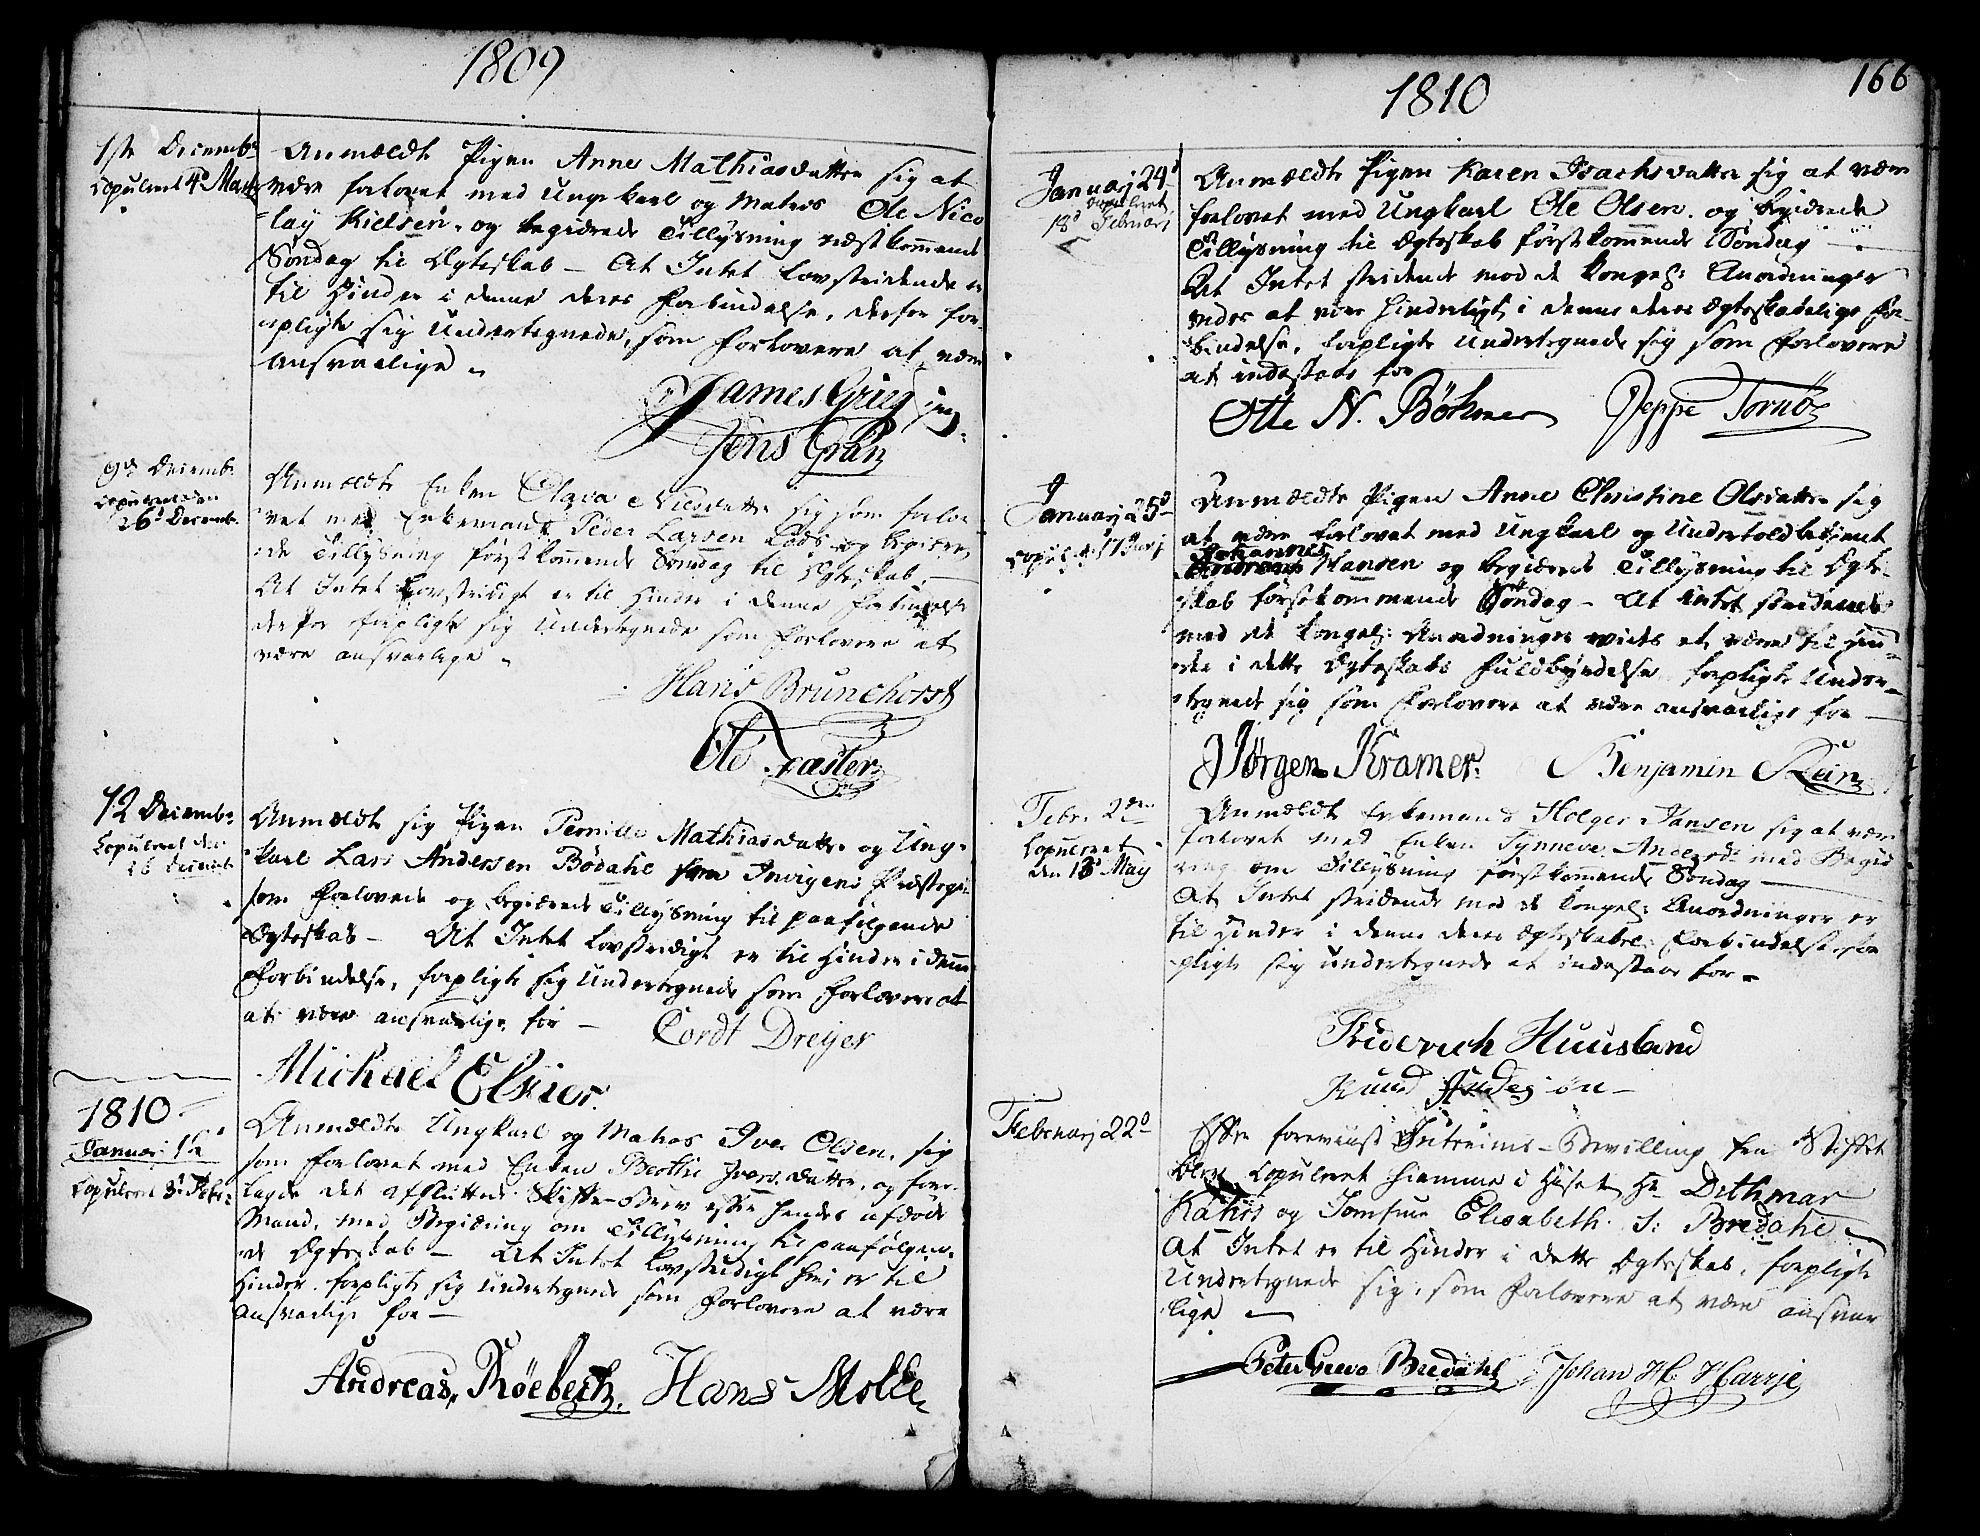 1809
1ste Decembr
Copuleret 4de Marti
Anmældte Pigen Anne Mathiasdatter sig at
være forlovet med Ungekarl og Matros Ole Nico
lay Kielsen, og begierede Tillysning næstkommende
Søndag til Ægteskab – At Intet Lovstridende er
til Hinder i denne deres Forbindelse, derfor for-
pligte sig Undertegnede, som Forlovere at være
ansvarlige
James Grieg jun.
Jens Gran
9de Decemb.
Copuleret den
26d Decemb.
Anmældte Enken Olava Nilsdatter sig som forlo
vet med Enkemand Peder Larsen Lods og begiere
de Tillysning førstkommende Søndag til Ægteskab.
At Intet Lovstridigt er til Hinder i denne Forbindelse
derfor forpligte sig Undertegnede som Forlovere at
være ansvarlige
Hans Brunchorst
Ole Fæster
12 Decembr
Copuleret den
26 Decembr
Anmældte sig Pigen Pernille Mathiasdatter og Ung-
karl Lars Andersen Bødahl fra Invigens Præstegi:
som Forlovede og begierede Tillysning til paafølgende
Ægteskab – At Intet Lovstridigt er til Hinder i denne
Forbindelse, forpligte sig Undertegnede som Forlovere at
at være ansvarlige for – Cordt Dreyer
Michael Elsier.
1810
Januar: 12
Copuleret d: Febr:
Anmældte Ungkarl og Matros Iver Olsen, sig
som forlovet med Enken Berthe Iversdatter, og frem-
lagde det afsluttede Skifte-Brev efter hendes afdøde
Mand, med Begiæring om Tillysning til paafølgen-
de Ægteskab – At Intet Lovstridigt heri er til
Hinder forpligte sig Undertegnede som Forlovere at være
ansvarlige for –
Andreas Röebech. Hans Molde
1810
166
Januarj 24d
Copuleret
18d Februari
Anmældte Pigen Karen Isachsdatter sig at være
forlovet med Ungkarl Ole Olsen. og begierede
Tillysning til Ægteskab førstkommende Søndag –
At Intet stridende mod de Kongel: Anordninger
vides at være hinderligt i denne deres Ægteskabelige For-
bindelse, forpligte Undertegnede sig som Forlovere
at indestaae for
Otte N. Böhmer Jeppe Tornöe
Januarj 25d
Copul: d: 17 Junj
Anmældte Pigen Anne Christine Olsdatter sig
at være forlovet med Ungkarl og Undertoldbetjent
Johannes
Hansen og begierede Tillysning til Ægte-
skab førstkommende Søndag – At intet stridende
mod de Kongel: Anordninger vides at være til Hin-
der i dette Ægteskabs Fuldbyrdelse forpligte Under-
tegnede sig som Forlovere at være ansvarlige for –
Jörgen Kramer. Benjamin Rein
Febr. 2den
Copuleret
den 13d May
Anmældte Enkemand Holger Jansen sig at være
forlovet med Enken Synneve Andersd: med Begiæ
ring om Tillysning førstkommende Søndag –
At Intet stridende mod de Kongel: Anordninger er
til Hinder i denne deres Ægteskabel: Forbindelse for
pligte sig undertegnede at indestaae for –
Friderich Huusland
Knud Andersön –
Februarj 22d
Efter foreviist Interims-Bevilling fra Stiftet
blev Copuleret hiemme i Huset Hr Dithmar
Kahrs og Jomfrue Elisabeth S: Bredahl –
At Intet er til Hinder i dette Ægteskab, forpligte
Undertegnede sig, som Forlovere at være ansvar
lige –
Peter Greve Bredahl Johan H. Harrje